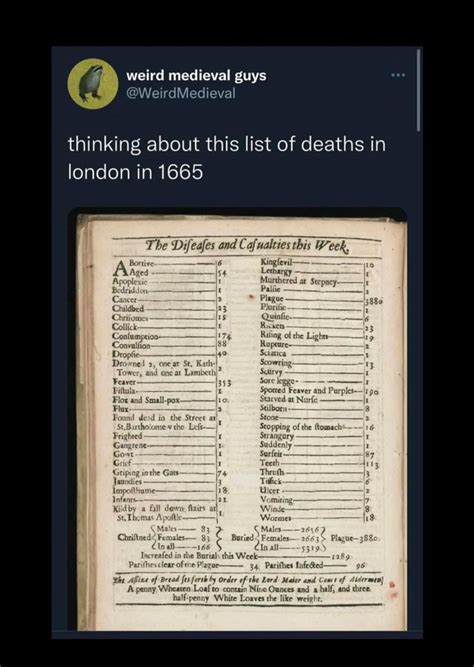 weird medieval guys
@WeirdMedieval
thinking about this list of deaths in
london in 1665
The Diſeaſes and Caſualties this Week.
Abortive 6
Aged 54
Apoplexie 1
Bedridden 1
Cancer 2
Childbed 23
Chriſomes 15
Collick 1
Conſumption 174
Convulſion 88
Dropſie 40
Drowned 2, one at St. Kath-
Tower, and one at Lambeth 2
Feaver 353
Fiſtula 1
Flox and Small-pox 10
Flux 2
Found dead in the Street at
St. Bartholomew the Leſs 1
Frighted 1
Gangrene 1
Gowt 1
Grief 1
Griping in the Guts 74
Jaundies 3
Impoſthume 18
Infants 21
Kild by a fall down ſtairs at
St. Thomas Apoſtle 1
Kingſevil 10
Lethargy 1
Murthered at Stepney 1
Palſie 2
Plague 3880
Pluriſie 1
Quinſie 6
Rickets 23
Riſing of the Lights 19
Rupture 2
Sciatica 1
Scowring 13
Scurvy 1
Sore legge 1
Spotted Feaver and Purples 190
Starved at Nurſe 1
Stilborn 8
Stone 2
Stopping of the ſtomach 16
Strangury 1
Suddenly 1
Surfeit 87
Teeth 113
Thruſh 3
Tiſſick 6
Ulcer 2
Vomiting 7
Winde 8
Wormes 18
Chriſtned Males 83 Females 83 In all 166
Buried Males 2656 Females 2663 In all 5319 Plague 3880
Increaſed in the Burials this Week 1289
Pariſhes clear of the Plague 34 Pariſhes Infected 96
The Aſſize of Bread ſet forth by Order of the Lord Maior and Court of Aldermen,
A penny Wheaten Loaf to contain Nine Ounces and a half, and three
half-penny White Loaves the like weight.